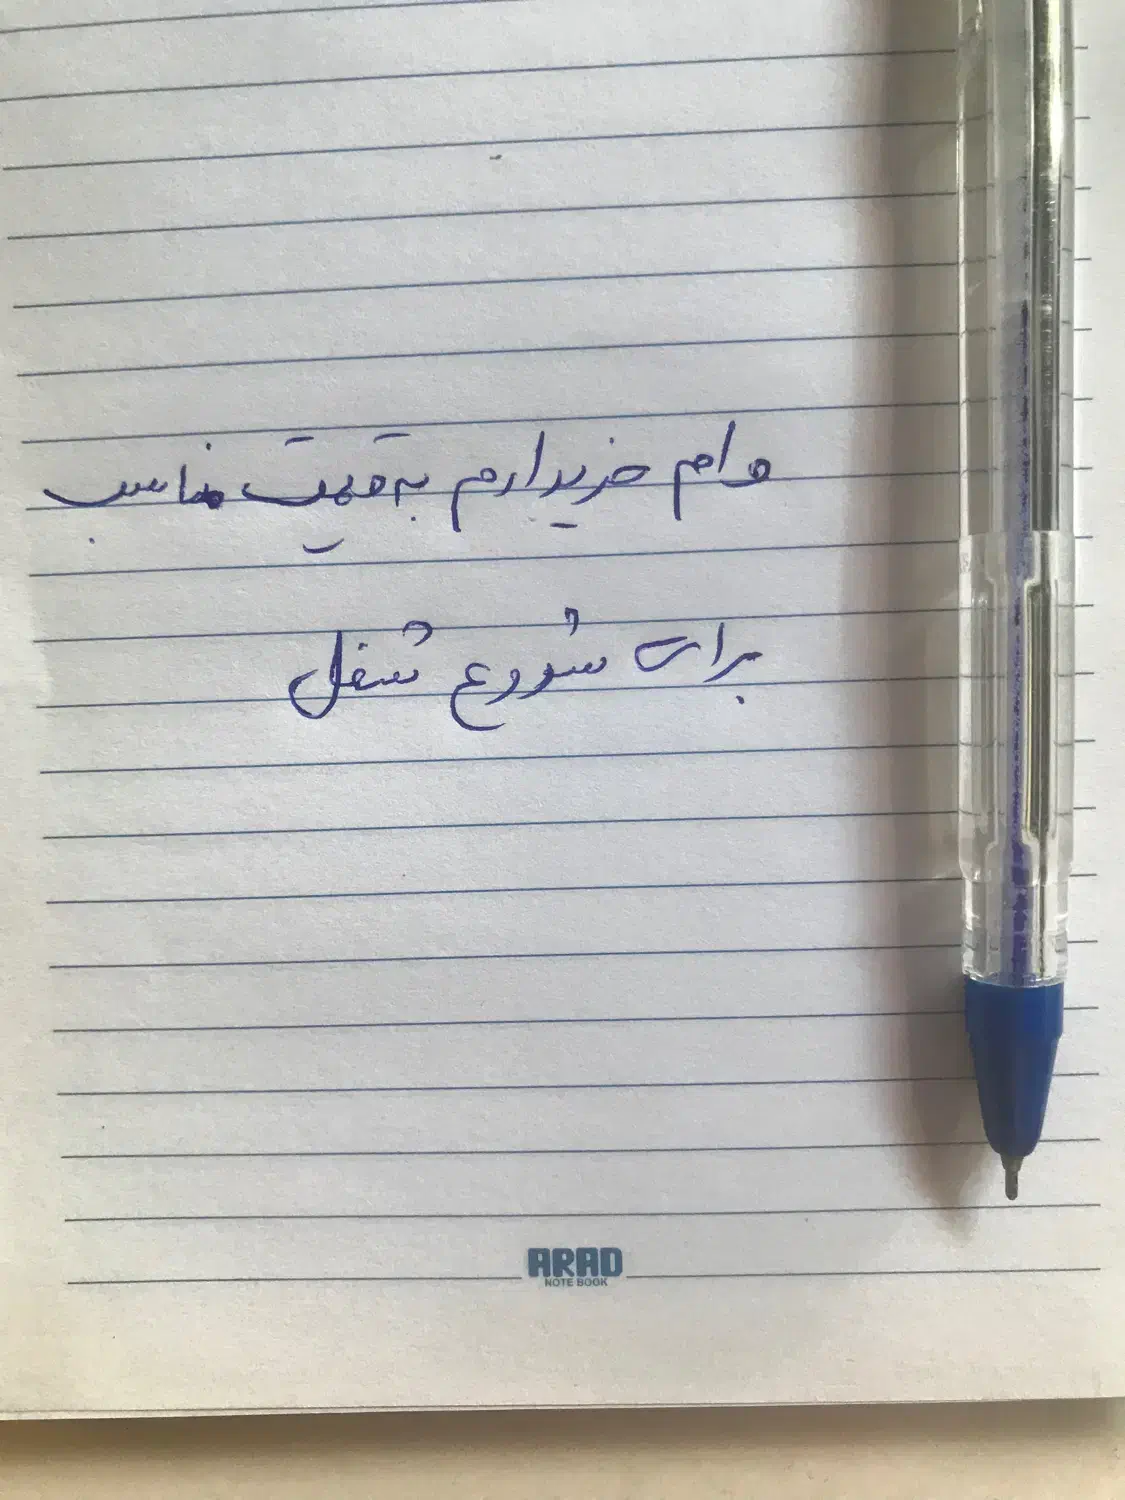 وام خریدارم به قیمت مناسب
برای شروع شغل
ARAD
NOTE BOOK